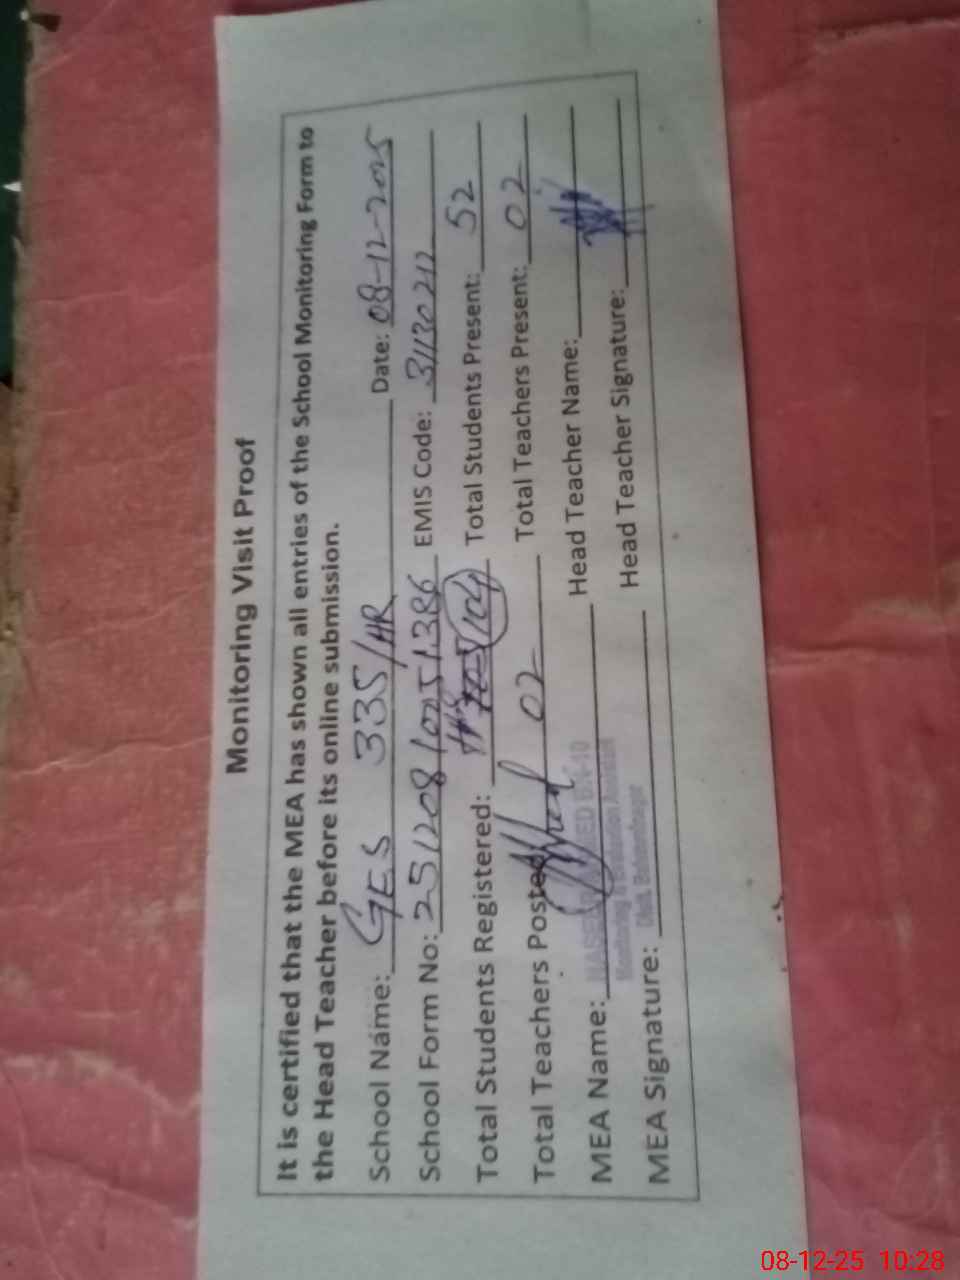 Monitoring Visit Proof
It is certified that the MEA has shown all entries of the School Monitoring Form to
the Head Teacher before its online submission.
School Name: GES 335/HR Date: 08-12-2025
School Form No: EMIS Code: 31130212
Total Students Registered: 104 Total Students Present: 52
Total Teachers Posted 02 Total Teachers Present: 02
MEA Name: Head Teacher Name:
Monitoring & Evaluation Assistant
MEA Signature: Head Teacher Signature:
Distt. Bahawalnagar
08-12-25 10:28